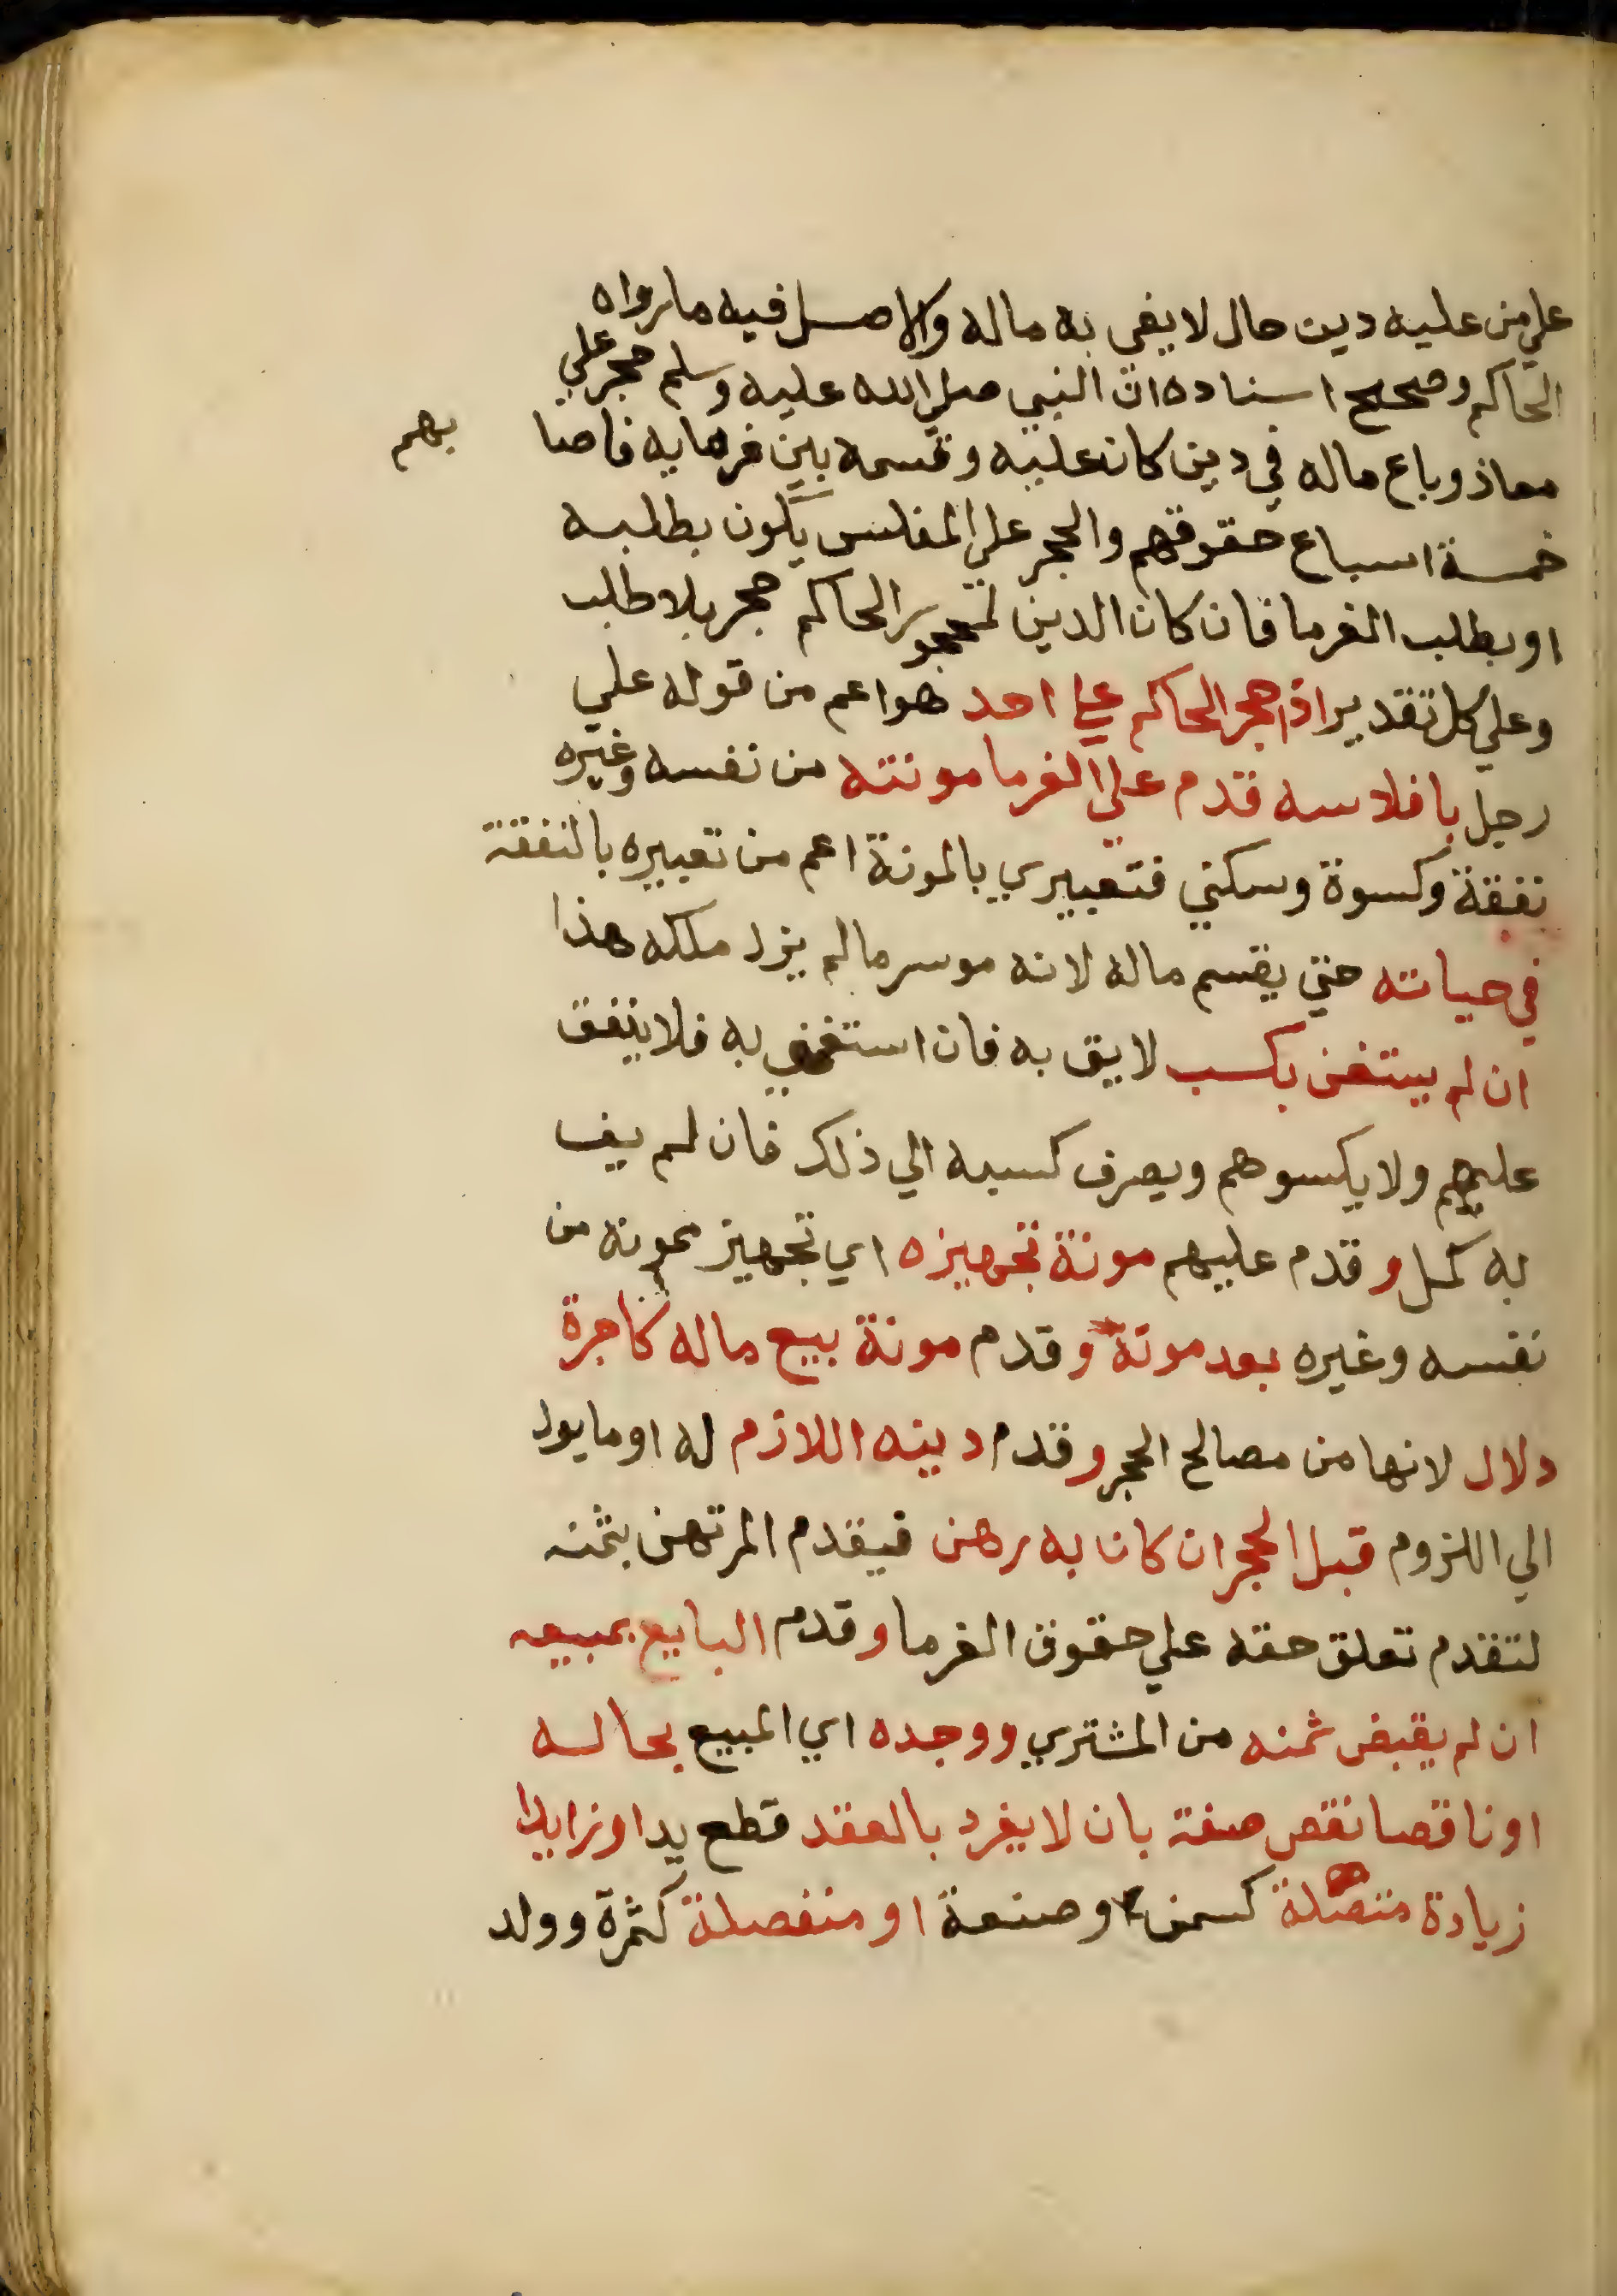 علي من عليه دين حال لا يفي به ماله والاصل فيه مارواه
الحاكم وصحح اسناده ان النبي صلي الله عليه وسلم حجر علي
معاذ وباع ماله في دين كان عليه وقسمه بين غرمايه فاصا بهم
خمسة اسباع حقوقهم والحجر علي المفلس يكون بطلبه
او بطلب الغرما فان كان الدين لمحجور الحاكم حجر بلا طلب
وعلي كل تقدير اذا حجر الحاكم علي احد هو اعم من قوله علي
رجل بافلاسه قدم علي الغرما مونته من نفسه وغيره
نفقة وكسوة وسكني فتعبيري بالمونة اعم من تعبيره بالنفقة
في حياته حتي يقسم ماله لانه موسر مالم يزل ملكه هذا
ان لم يستغن بكسب لايق به فان استغني به فلا ينفق
عليهم ولا يكسوهم ويصرف كسبه الي ذلك فان لم يف
به كمل وقدم عليهم مونة تجهيزه اي تجهيز ممونه من
نفسه وغيره بعد موته وقدم مونة بيع ماله كاجرة
دلال لانها من مصالح الحجر وقدم دينه اللازم له او مايول
الي اللزوم قبل الحجر ان كان به رهن فيقدم المرتهن بثمنه
لتقدم تعلق حقه علي حقوق الغرما وقدم البايع بمبيعه
ان لم يقبض ثمنه من المشتري ووجده اي المبيع بحاله
او ناقصا نقص صفة بان لا يفرد بالعقد قطع يد او زايدا
زيادة متصلة كسمن وصنعة او منفصلة كثمرة وولد